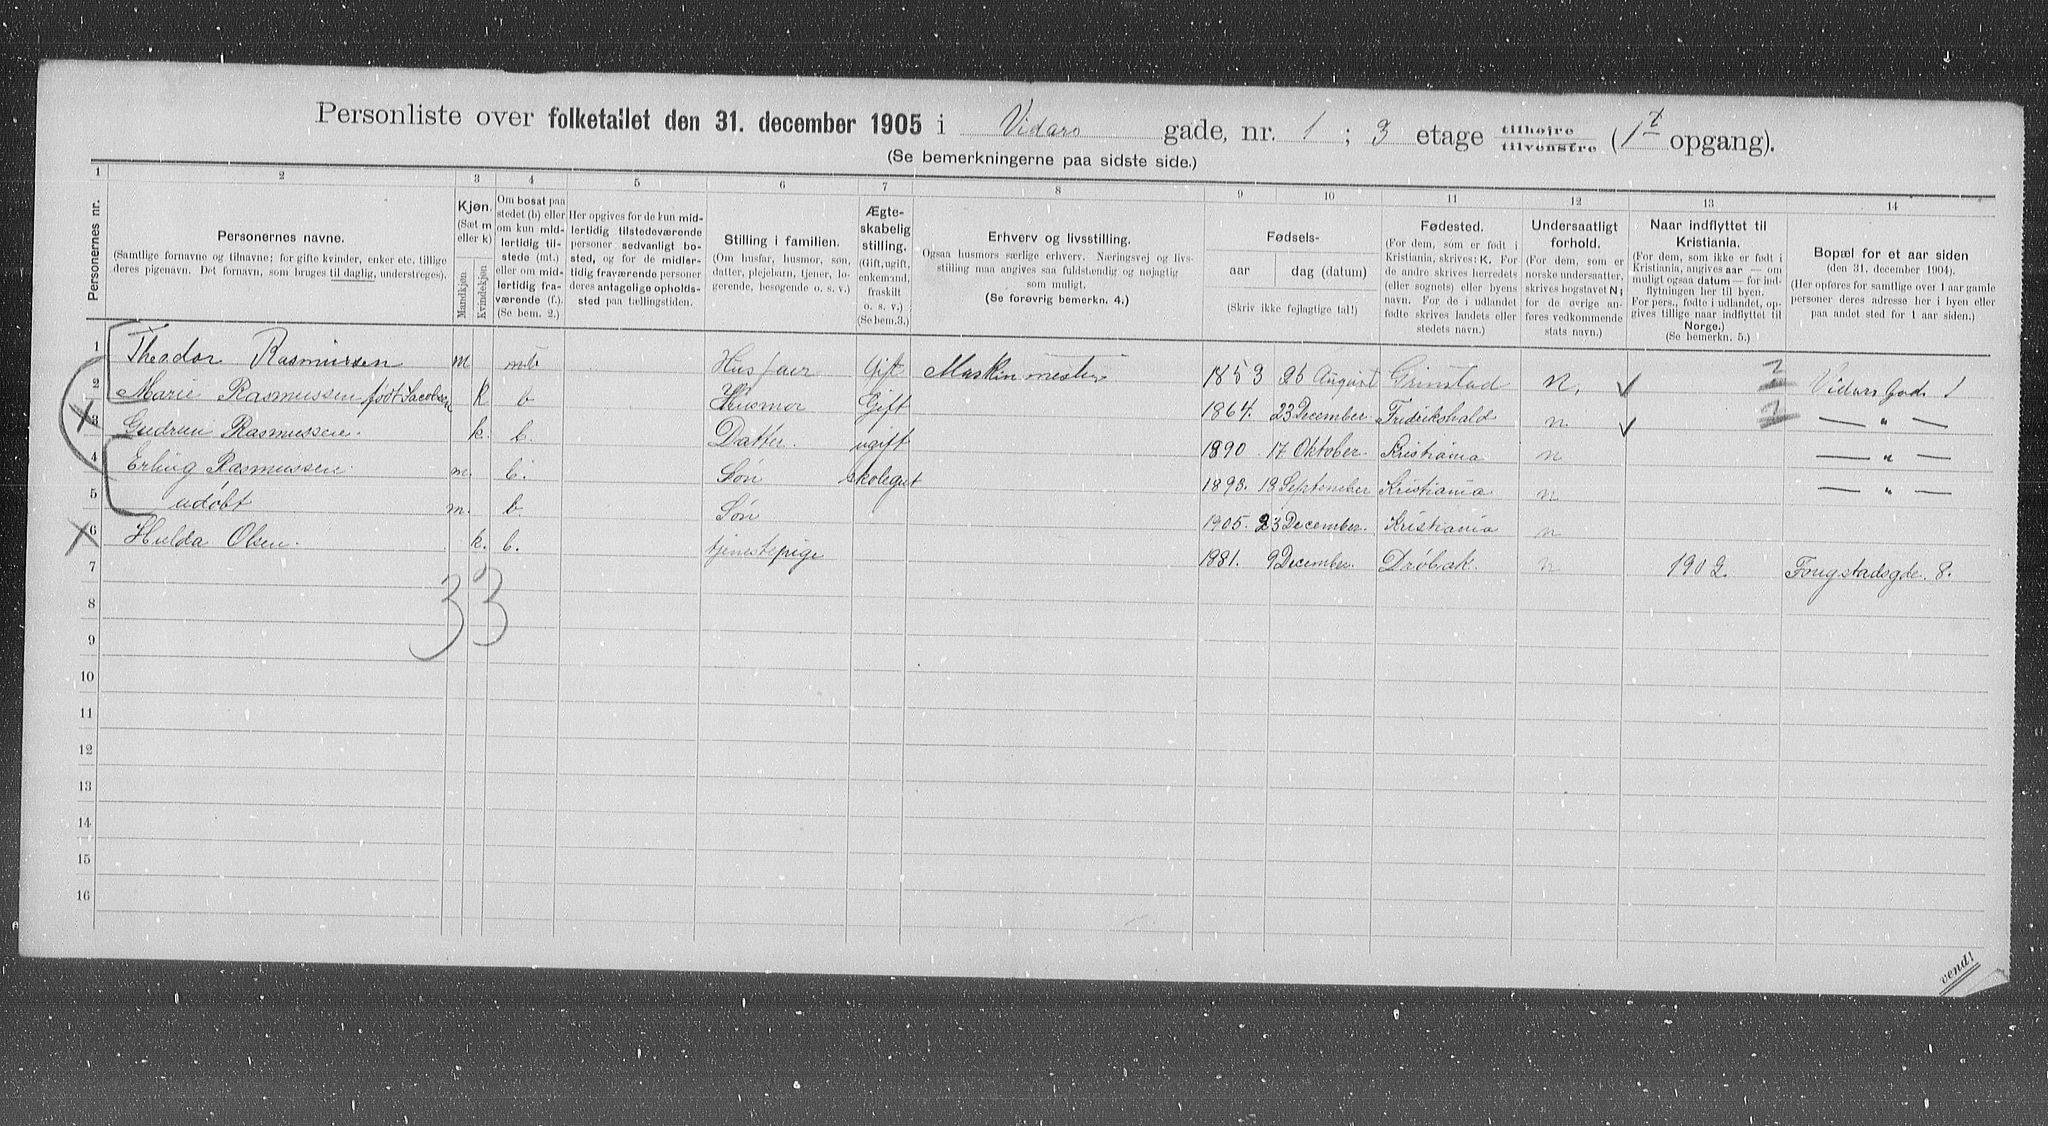 Personliste over folketallet den 31. december 1905 i Vidars gade, nr. 1 ; 3 etage tilhøjre tilvenstre (1st opgang).
(Se bemerkningerne paa sidste side.)
1 2 3 4 5 6 7 8 9 10 11 12 13 14
Personernes nr.
Personernes navne.
(Samtlige fornavne og tilnavne; for gifte kvinder, enker etc. tillige
deres pigenavn. Det fornavn, som bruges til daglig, understreges).
Kjøn.
(Sæt m
eller k)
Mandkjøn.
Kvindekjøn
Om bosat paa
stedet (b) eller
om kun mid-
lertidig til-
stede (mt.)
eller om mid-
lertidig fra-
værende (f.).
(Se bem. 2.)
Her opgives for de kun mid-
lertidig tilstedeværende
personer sedvanligt bo-
sted, og for de midler-
tidig fraværende personer
deres antagelige opholds-
sted paa tællingstiden.
Stilling i familien.
(Om husfar, husmor, søn,
datter, plejebarn, tjener, lo-
gerende, besøgende o. s. v.)
Ægte-
skabelig
stilling.
(Gift, ugift,
enkemand,
fraskilt
o. s. v.)
(Se bem.3.)
Erhverv og livsstilling.
Ogsaa husmors særlige erhverv. Næringsvej og livs-
stilling maa angives saa fuldstændig og nøjagtig
som muligt.
(Se forøvrig bemerkn. 4.)
Fødsels-
aar dag (datum)
(Skriv ikke fejlagtige tal!)
Fødested.
(For dem, som er født i
Kristiania, skrives: K. For
de andre skrives herredets
(eller sognets) eller byens
navn. For de i udlandet
fødte skrives landets eller
stedets navn.)
Undersaatligt
forhold.
(For dem, som er
norske undersaatter,
skrives bogstavet N;
for de øvrige an-
føres vedkommende
stats navn.)
Naar indflyttet til
Kristiania.
(For dem, som ikke er født i
Kristiania, angives aar — om
muligt ogsaa datum — for ind-
flytningen her til byen.
For pers., fødte i udlandet, op-
gives tillige naar indflyttet til
Norge.)
(Se bemerkn. 5.)
Bopæl for et aar siden
(den 31. december 1904).
(Her opføres for samtlige over 1 aar gamle
personer deres adresse her i byen eller
paa andet sted for 1 aar siden.)
1 Theodor Rasmussen m Husfaer Gift Maskinmester 1853 26 August Grimstad N. 2 Vidars Gade 1
2 Marie Rasmussen født Jacobsen k b Husmor Gift 1864. 23 December Fredrikshald n 2 — " —
3 Gudrun Rasmussen. k. b. Datter. ugift 1890 17 Oktober. Kristiania n — " —
4 Erling Rasmussen. m. b. Søn skolegut 1893. 18 September Kristiania n — " —
5 udøbt m. b. Søn 1905. 23 December. Kristiania n
6 Hulda Olsen. k. b. tjenestepige 1881. 9 December. Drøbak. n 1902. Fougstadsgde. 8.
7
33
8
9
10
11
12
13
14
15
16
vend!